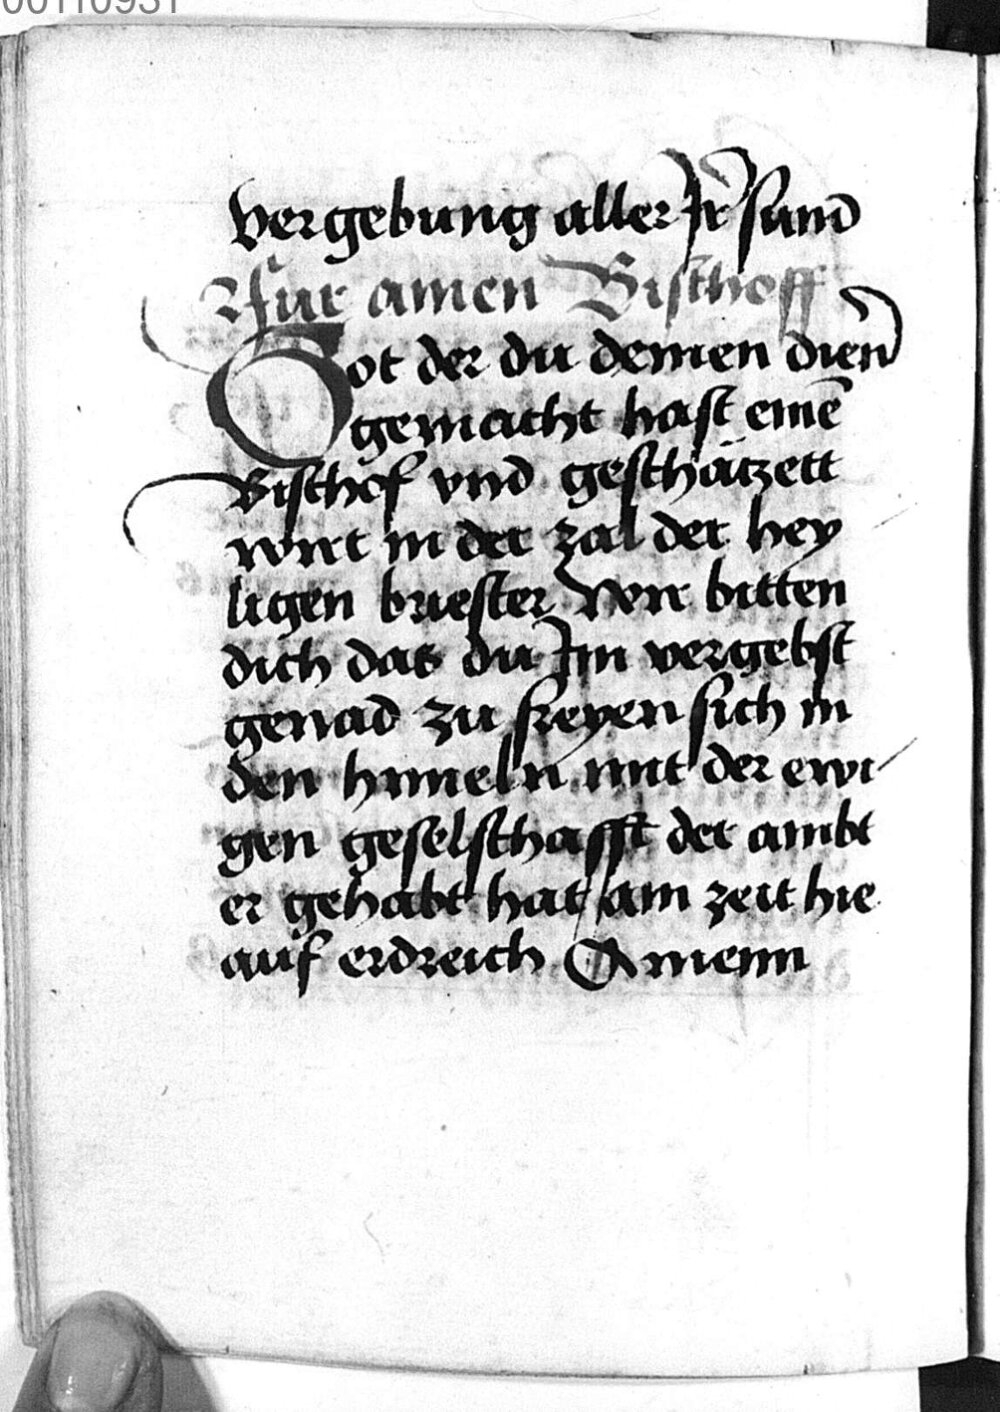 00110931
vergebung aller Jr̄ sund
Fur ainen Bischoff
Got der du deinen dien̄
gemacht hast einē
Bischof vnd geschätzett
wirt in der zal der hey
ligen briester Wir bitten
dich das du Im vergebst
genad zu freyen sich in
den himeln mit der ewi
gen geselschafft der ambt
er gehabt hat am zeit hie
auf erdreich Amenn